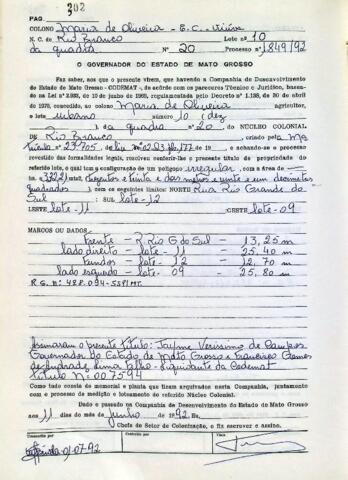 302
PAG.
COLONO Maria de Oliveira - E.C. - Viúva
N. C. de Rio Branco Lote nº 10
da quadra Nº 20 Processo nº 1849/92
O GOVERNADOR DO ESTADO DE MATO GROSSO
Faz saber, aos que o presente virem, que havendo a Companhia de Desenvolvimento
do Estado de Mato Grosso - CODEMAT -, de acôrdo com os pareceres Técnico e Jurídico, basea-
do na Lei nº de 10 de junho de regulamentada pelo Decreto nº 1.138, de 30 de abril
de 1970, concedido, ao colono Maria de Oliveira agricultor,
o lote urbano número 10 (dez
) da quadra nº 20 do NÚCLEO COLONIAL
DE Rio Branco, criado pelo Ma
trícula nº 23.705, de Liv nº 02.D3.fls.177 de 19 , e achando-se o processo
revestido das formalidades legais, resolveu conferir-lhe o presente título de propriedade do
referido lote, o qual tem a configuração de um polígono irregular, com a área de
ha. 332,21 m2, (trezentos e trinta e dois metros e vinte e um decímetros
quadrados), com os seguintes limites: NORTE Rua Rio Grande do
Sul : SUL lote - 12
LESTE lote - 11 OESTE lote - 09
MARCOS OU DADOS
frente - R. Rio G. do Sul - 13,25 m
lado direito - lote - 11 - 25,40 m
Fundos - lote - 12 - 12,70 m
lado esquerdo - lote - 09 - 25,80 m
R.G. nº 488.094-SSP/MT.
Assinaram o presente título: Jayme Verissimo de Campos
Governador do Estado de Mato Grosso e Francisco Gomes
de Andrade Lima Filho - Liquidante da Codemat
Título Nº 007594
Como tudo consta do memorial e planta que ficam arquivados nesta Companhia, juntamente
com o processo de medição e loteamento do referido Núcleo Colonial.
Dado e passado na Companhia de Desenvolvimento do Estado de Mato Grosso
aos 11 dias do mês de junho de 1992. Eu
Chefe do Setor de Colonização, o fiz escrever e assino.
Conferido por
Visto
01-07-92